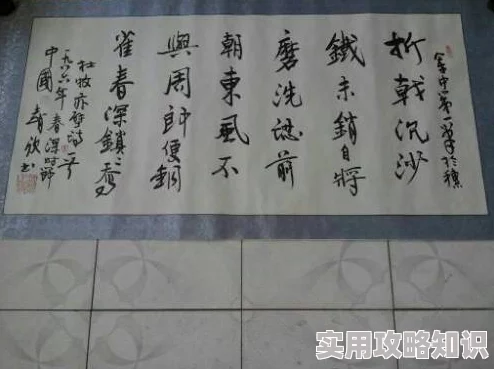 第一筆於穗
折戟沉沙
鐵未銷自將
磨洗認前
朝東風不
與周郎便銅
雀春深鎖二喬
杜牧赤壁詩一首
一九八六年春深時節
中國
欣書
实用攻略知识